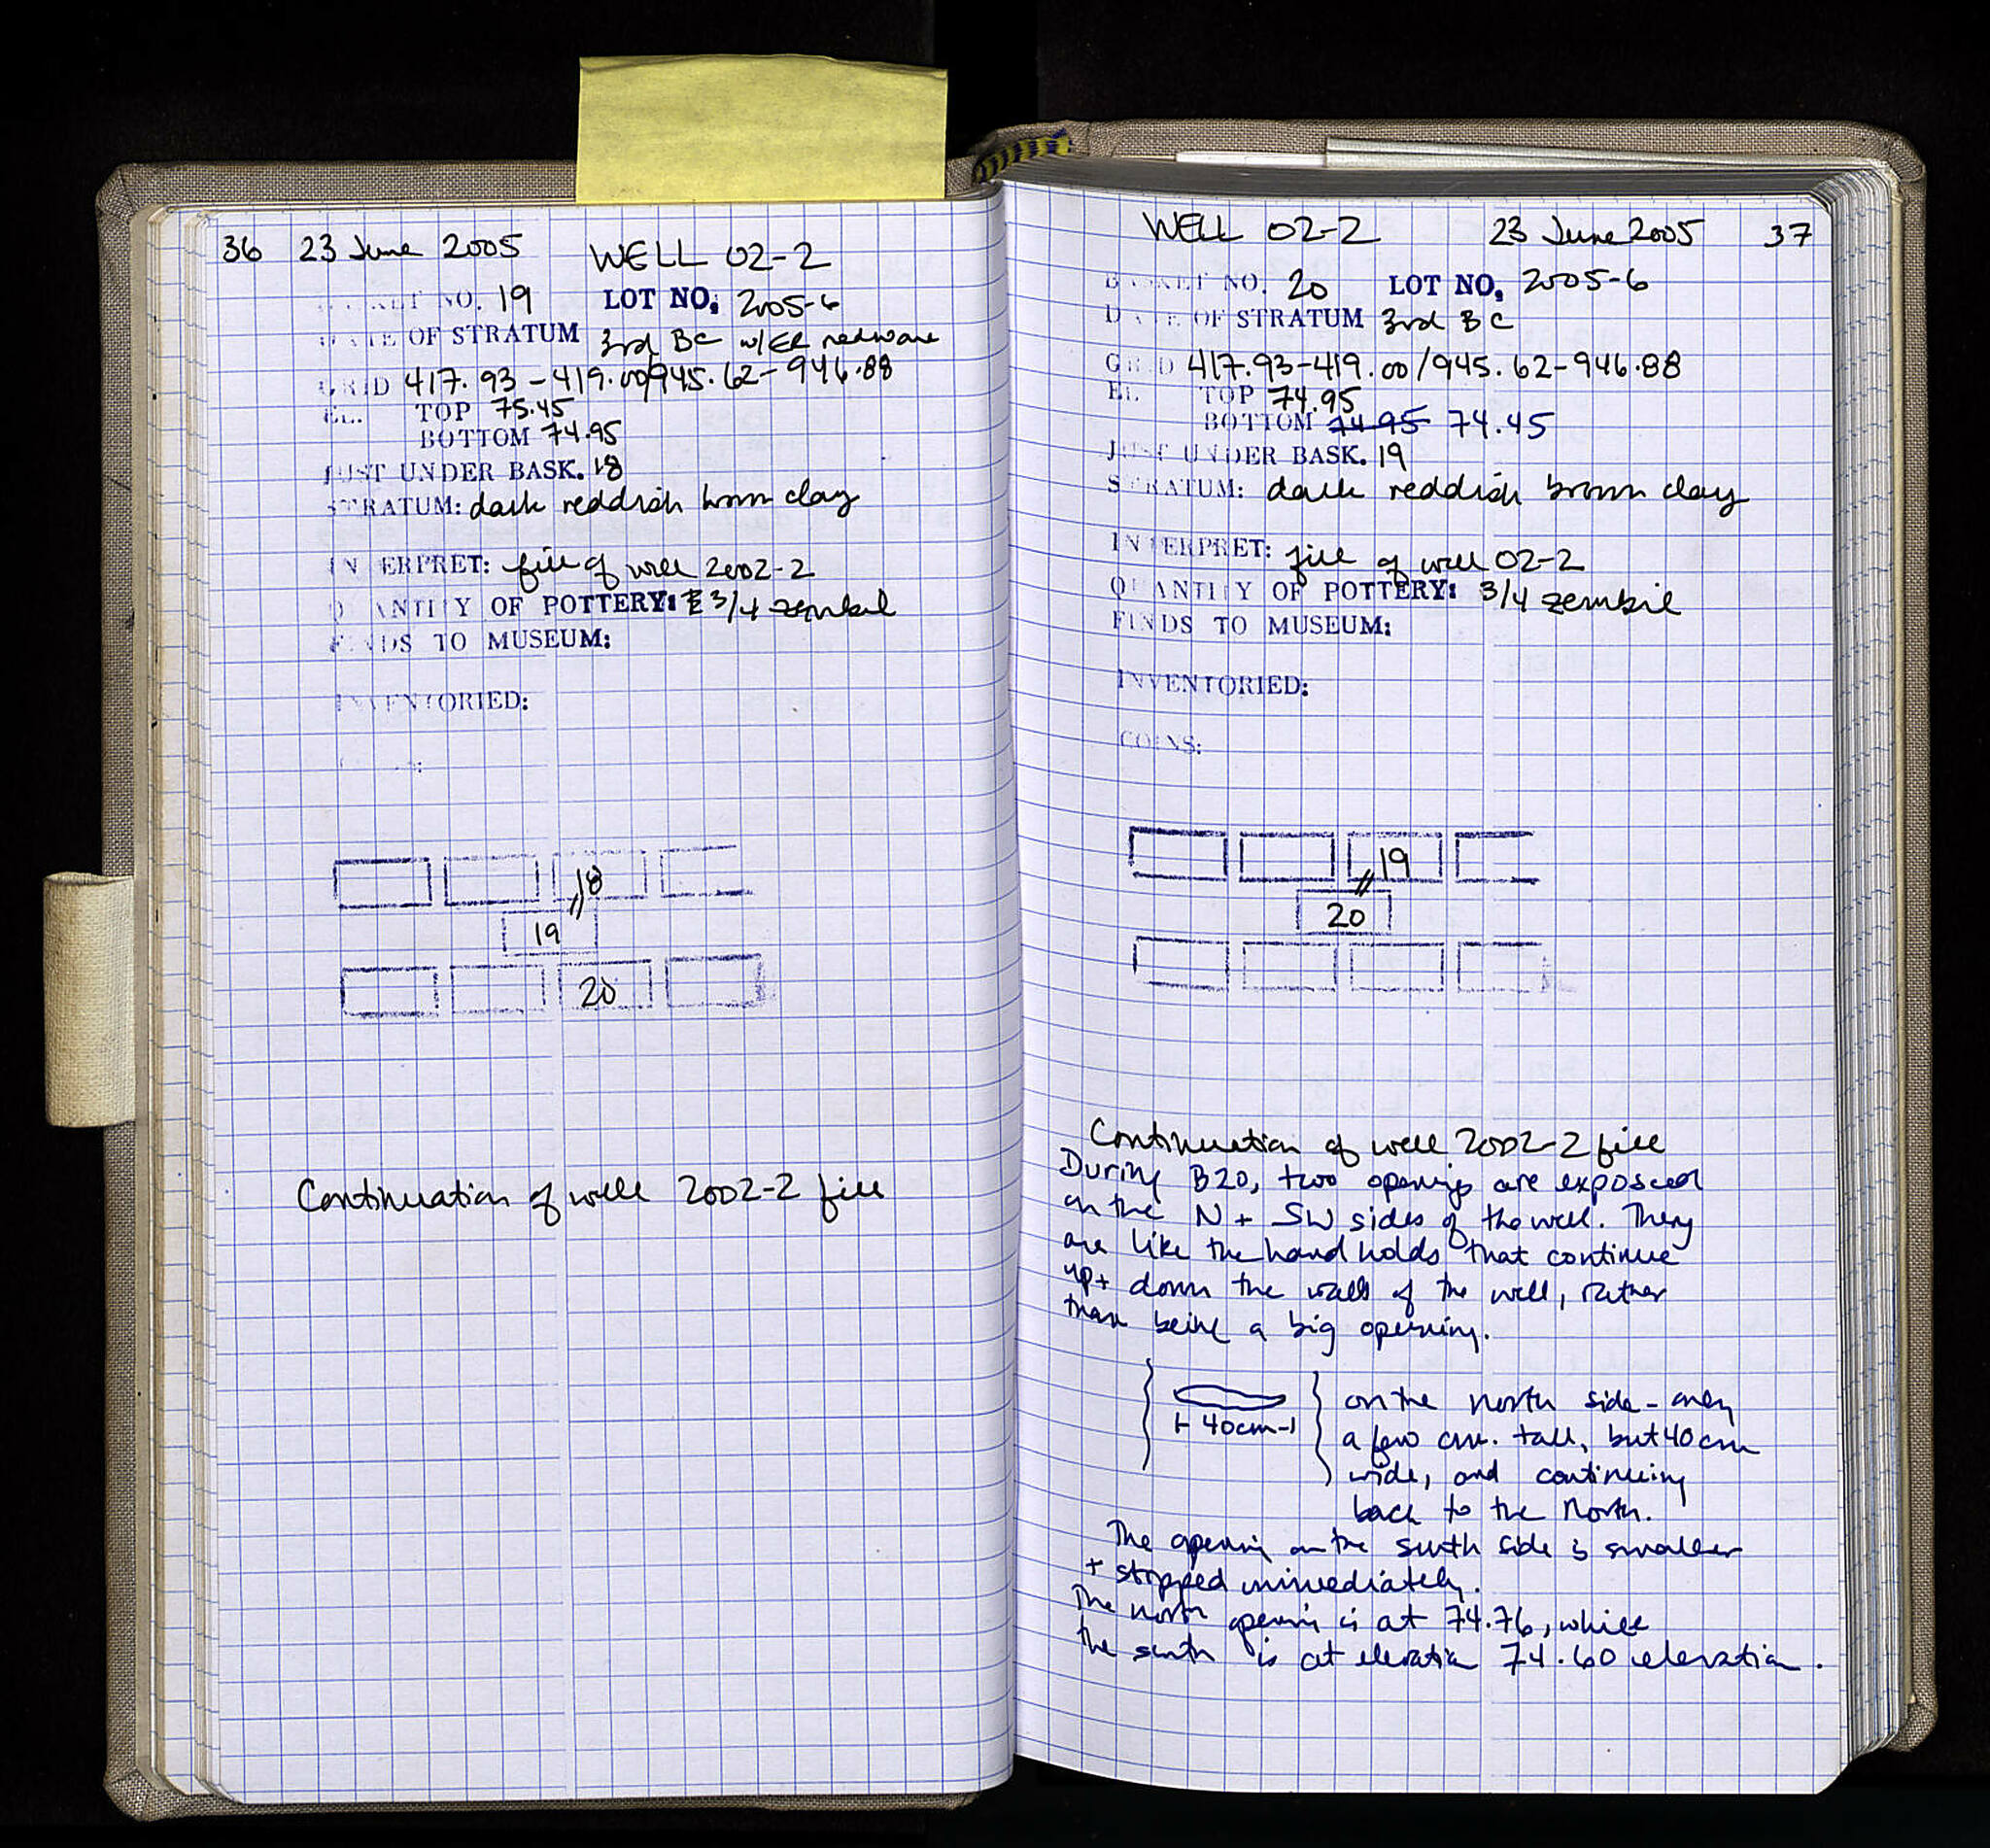 36 23 June 2005 WELL 02-2
BASKET NO. 19 LOT NO. 2005-6
DATE OF STRATUM 3rd BC w/ER redware
GRID 417.93-419.00/945.62-946.88
EL. TOP 75.45
BOTTOM 74.95
JUST UNDER BASK. 18
STRATUM: dark reddish brown clay
INTERPRET: fill of well 2002-2
QUANTITY OF POTTERY: 3/4 zembil
FINDS TO MUSEUM:
INVENTORIED:
18
19
20
Continuation of well 2002-2 fill
WELL 02-2 23 June 2005 37
BASKET NO. 20 LOT NO. 2005-6
DATE OF STRATUM 3rd BC
GRID 417.93-419.00/945.62-946.88
EL. TOP 74.95
BOTTOM 74.95 74.45
JUST UNDER BASK. 19
STRATUM: dark reddish brown clay
INTERPRET: fill of well 02-2
QUANTITY OF POTTERY: 3/4 zembil
FINDS TO MUSEUM:
INVENTORIED:
COINS:
19
20
Continuation of well 2002-2 fill
During B20, two openings are exposed
on the N + SW sides of the well. They
are like the hand holds that continue
up + down the walls of the well, rather
than being a big opening.
40cm
on the north side - only
a few cm. tall, but 40 cm
wide, and continuing
back to the North.
The opening on the south side is smaller
+ stopped immediately.
The north opening is at 74.76, while
the south is at elevation 74.60 elevation.